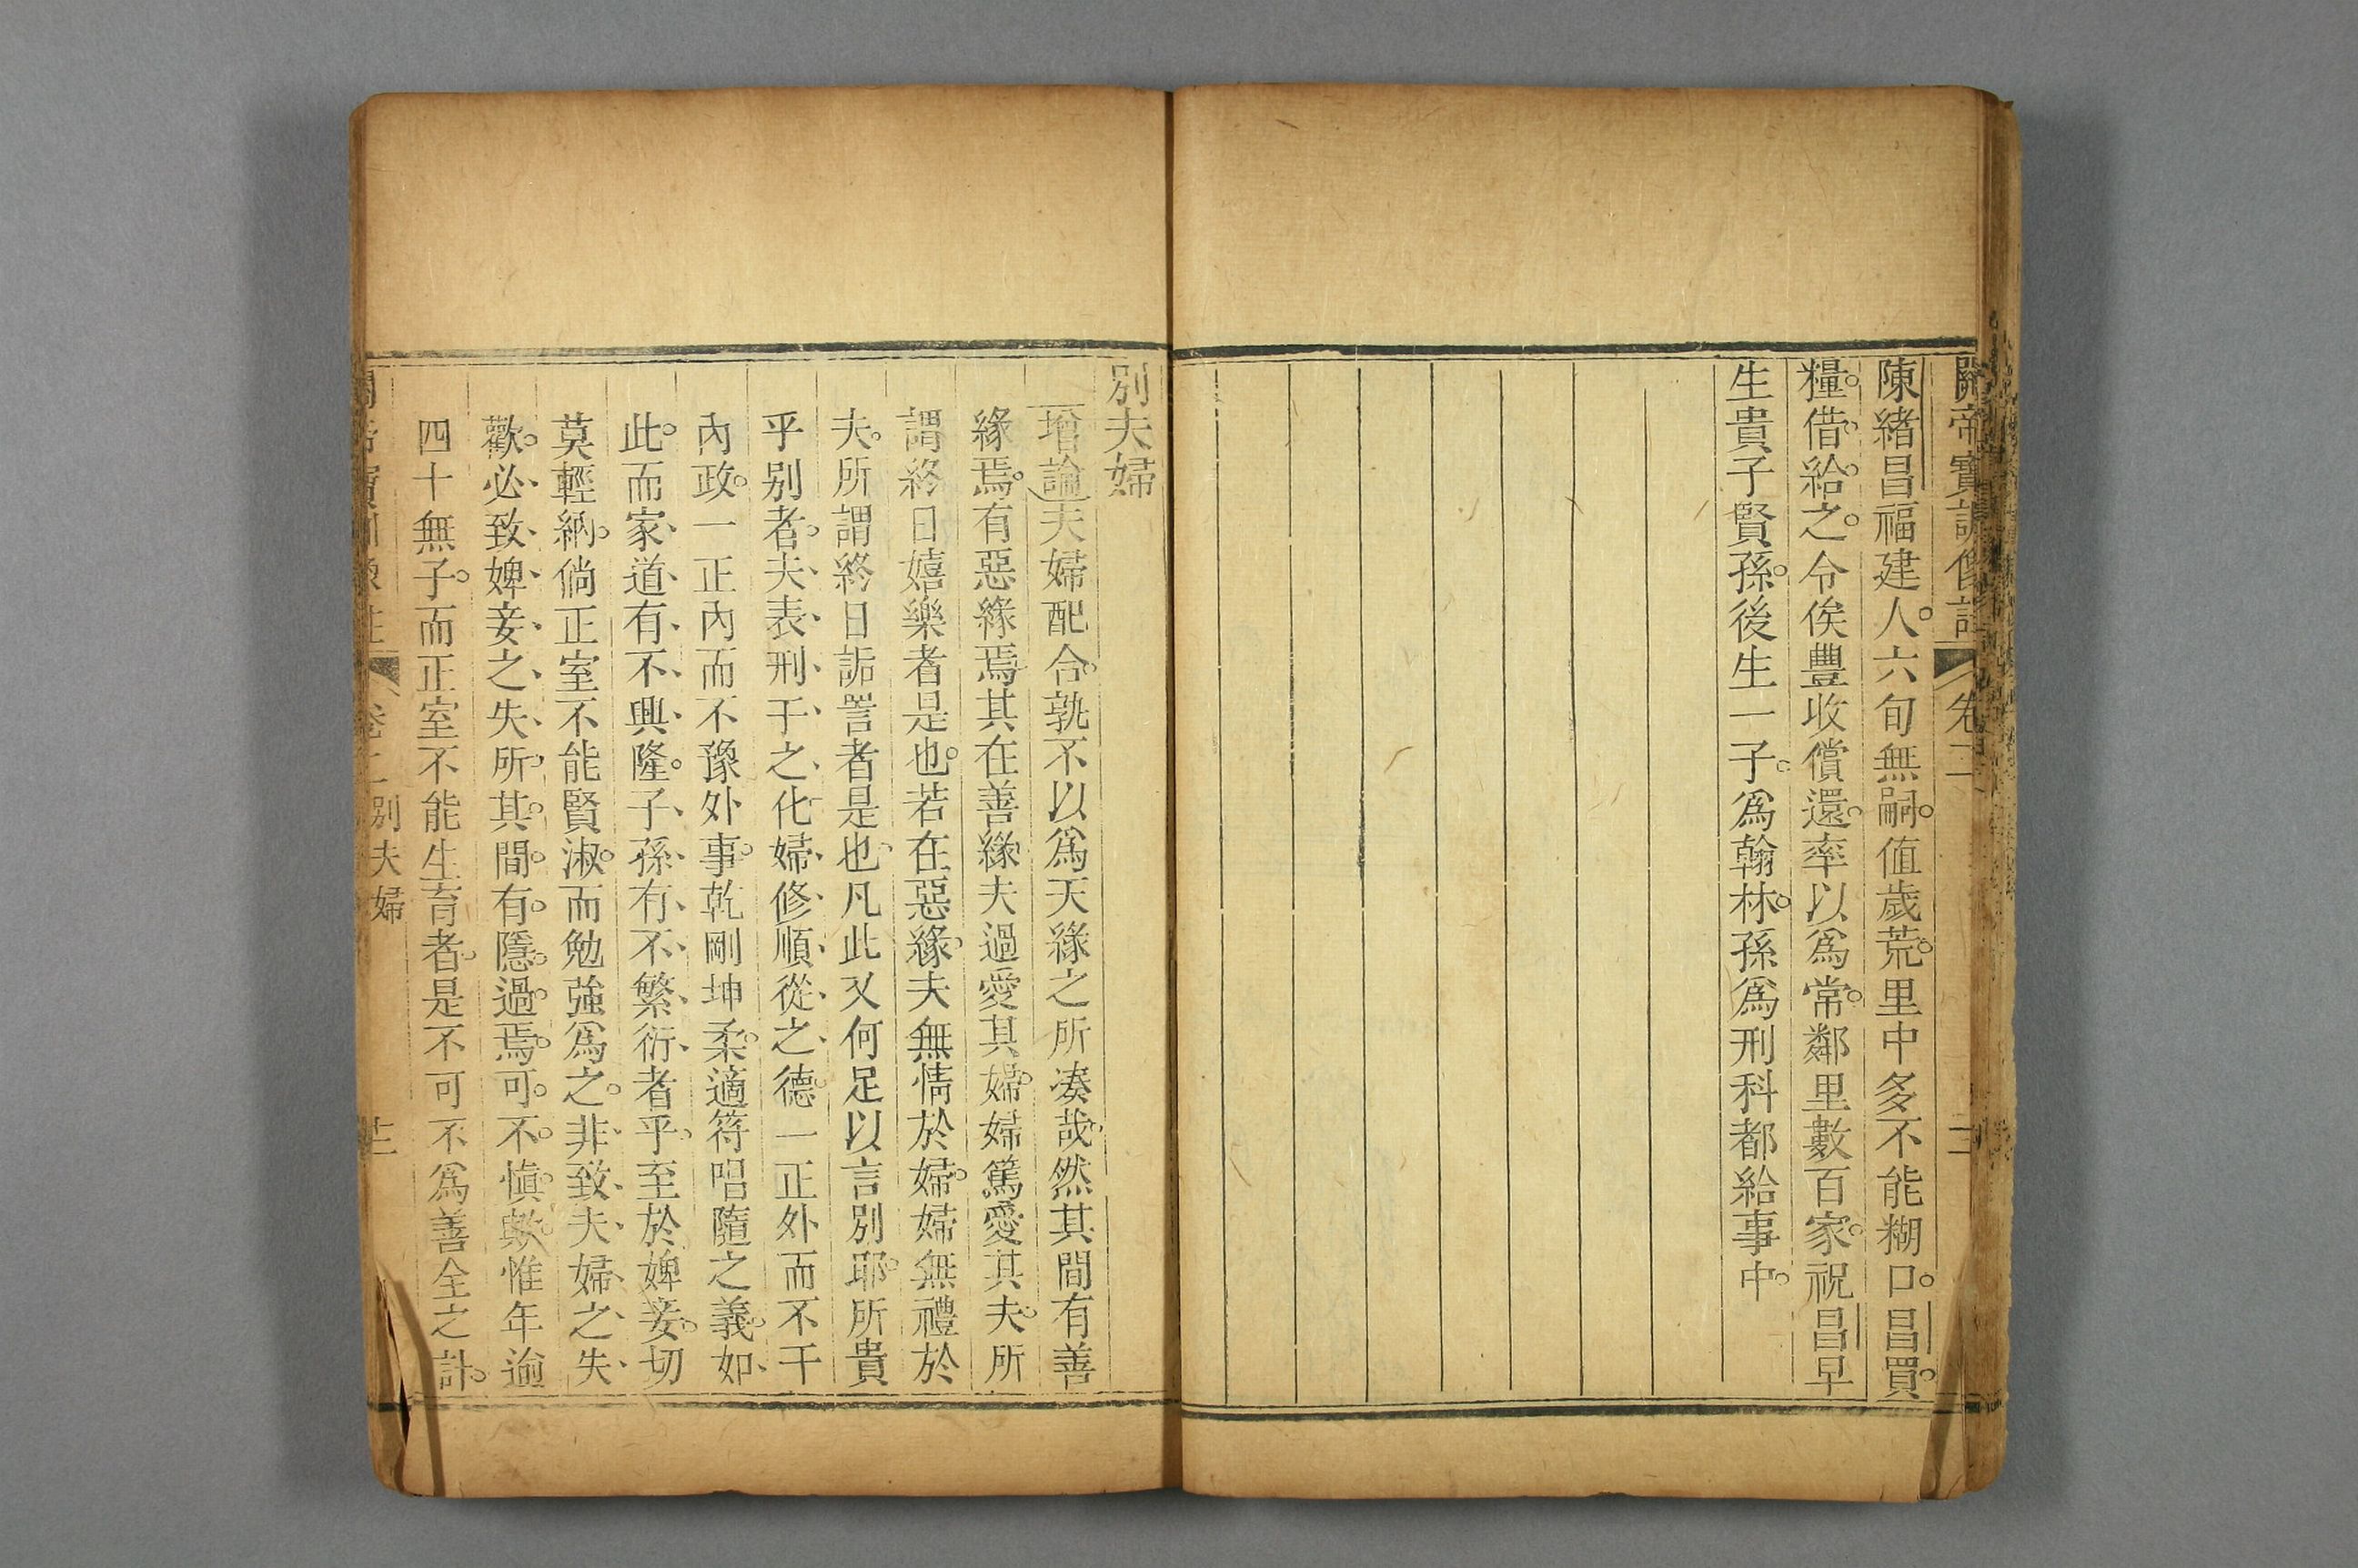 關帝寶訓像註 卷二
陳緒昌福建人。六旬無嗣。值歲荒。里中多不能糊口。昌買。
糧。借、給。之。令俟豐收償還。率以爲常。鄰里數百家。祝昌早
生貴子賢孫。後生一子。爲翰林。孫爲刑科都給事中。
別夫婦
增論夫婦配合。孰不以爲天緣之所湊哉。然其間有善
緣焉。有惡緣焉。其在善緣。夫過愛其婦。婦篤愛其夫。所
謂終日嬉樂者是也。若在惡緣。夫無情於婦。婦無禮於
夫。所謂終日詬詈者是也。凡此又何足以言別耶。所貴
乎别者。夫、表、刑、于、之、化、婦、修、順、從、之、德。一正外而不干
內政。一正內而不豫外事。乾剛坤柔。適符唱隨之義。如、
此。而家、道、有、不、興、隆。子、孫、有、不、繁、衍、者乎。至於婢妾。切
莫輕納。倘正室不能賢淑。而勉強爲之。非、致、夫、婦、之、失、
歡。必、致、婢、妾、之、失、所、其。間。有。隱。過。焉。可。不。愼。歟。惟年逾
四十無子。而正室不能生育者。是不可不爲善全之計。
卷二 別夫婦 廿二